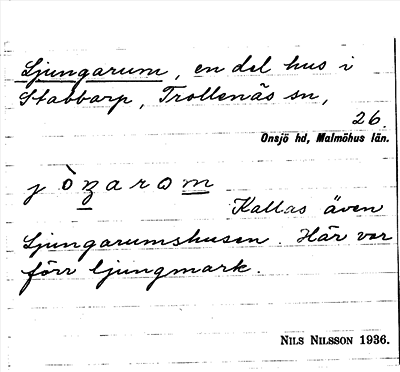 Ljungarum, en del hus i
Stabbarp, Trollenäs sn,
26
Onsjö hd, Malmöhus län.
Kallas även
Ljungarumshusen. Här var
förr ljungmark.
NILS NILSSON 1936.